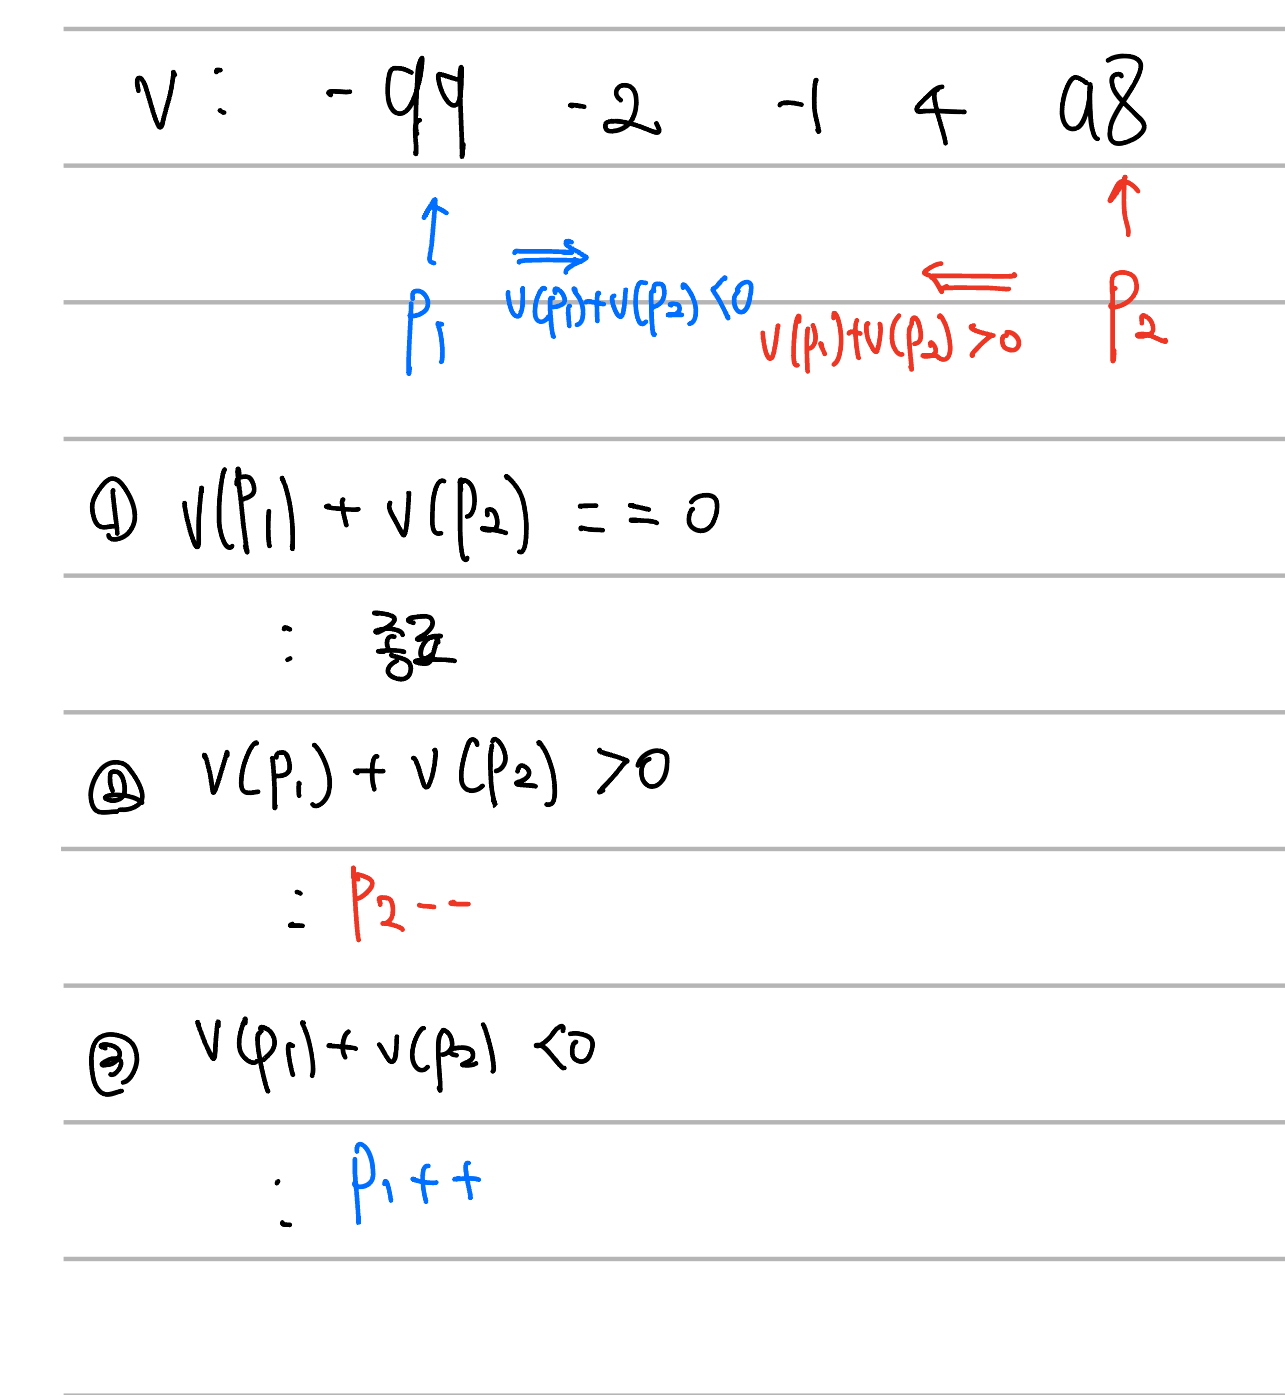 V : -99 -2 -1 4 98
↑ ⇒ ⇐ ↑
P1 V(P1)+V(P2)<0 V(P1)+V(P2)>0 P2
① V(P1) + V(P2) == 0
: 종료
② V(P1) + V(P2) >0
: P2--
③ V(P1)+V(P2) <0
: P1++